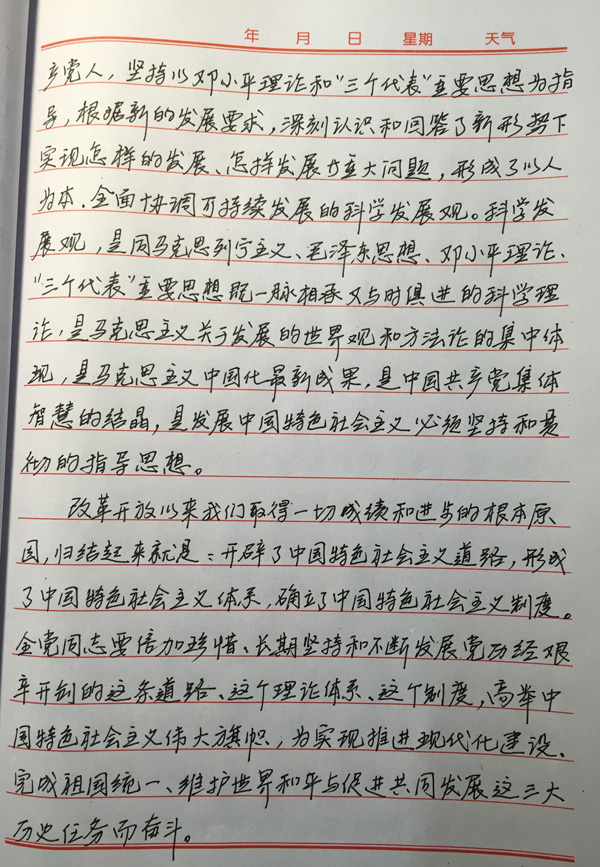 年 月 日 星期 天气
产党人，坚持以邓小平理论和“三个代表”重要思想为指
导，根据新的发展要求，深刻认识和回答了新形势下
实现怎样的发展、怎样发展等重大问题，形成了以人
为本、全面协调可持续发展的科学发展观。科学发
展观，是同马克思列宁主义、毛泽东思想、邓小平理论、
“三个代表”重要思想既一脉相承又与时俱进的科学理
论，是马克思主义关于发展的世界观和方法论的集中体
现，是马克思主义中国化最新成果，是中国共产党集体
智慧的结晶，是发展中国特色社会主义必须坚持和贯
彻的指导思想。
改革开放以来我们取得一切成绩和进步的根本原
因，归结起来就是：开辟了中国特色社会主义道路，形成
了中国特色社会主义体系，确立了中国特色社会主义制度。
全党同志要倍加珍惜、长期坚持和不断发展党历经艰
辛开创的这条道路、这个理论体系、这个制度，高举中
国特色社会主义伟大旗帜，为实现推进现代化建设、
完成祖国统一、维护世界和平与促进共同发展这三大
历史任务而奋斗。